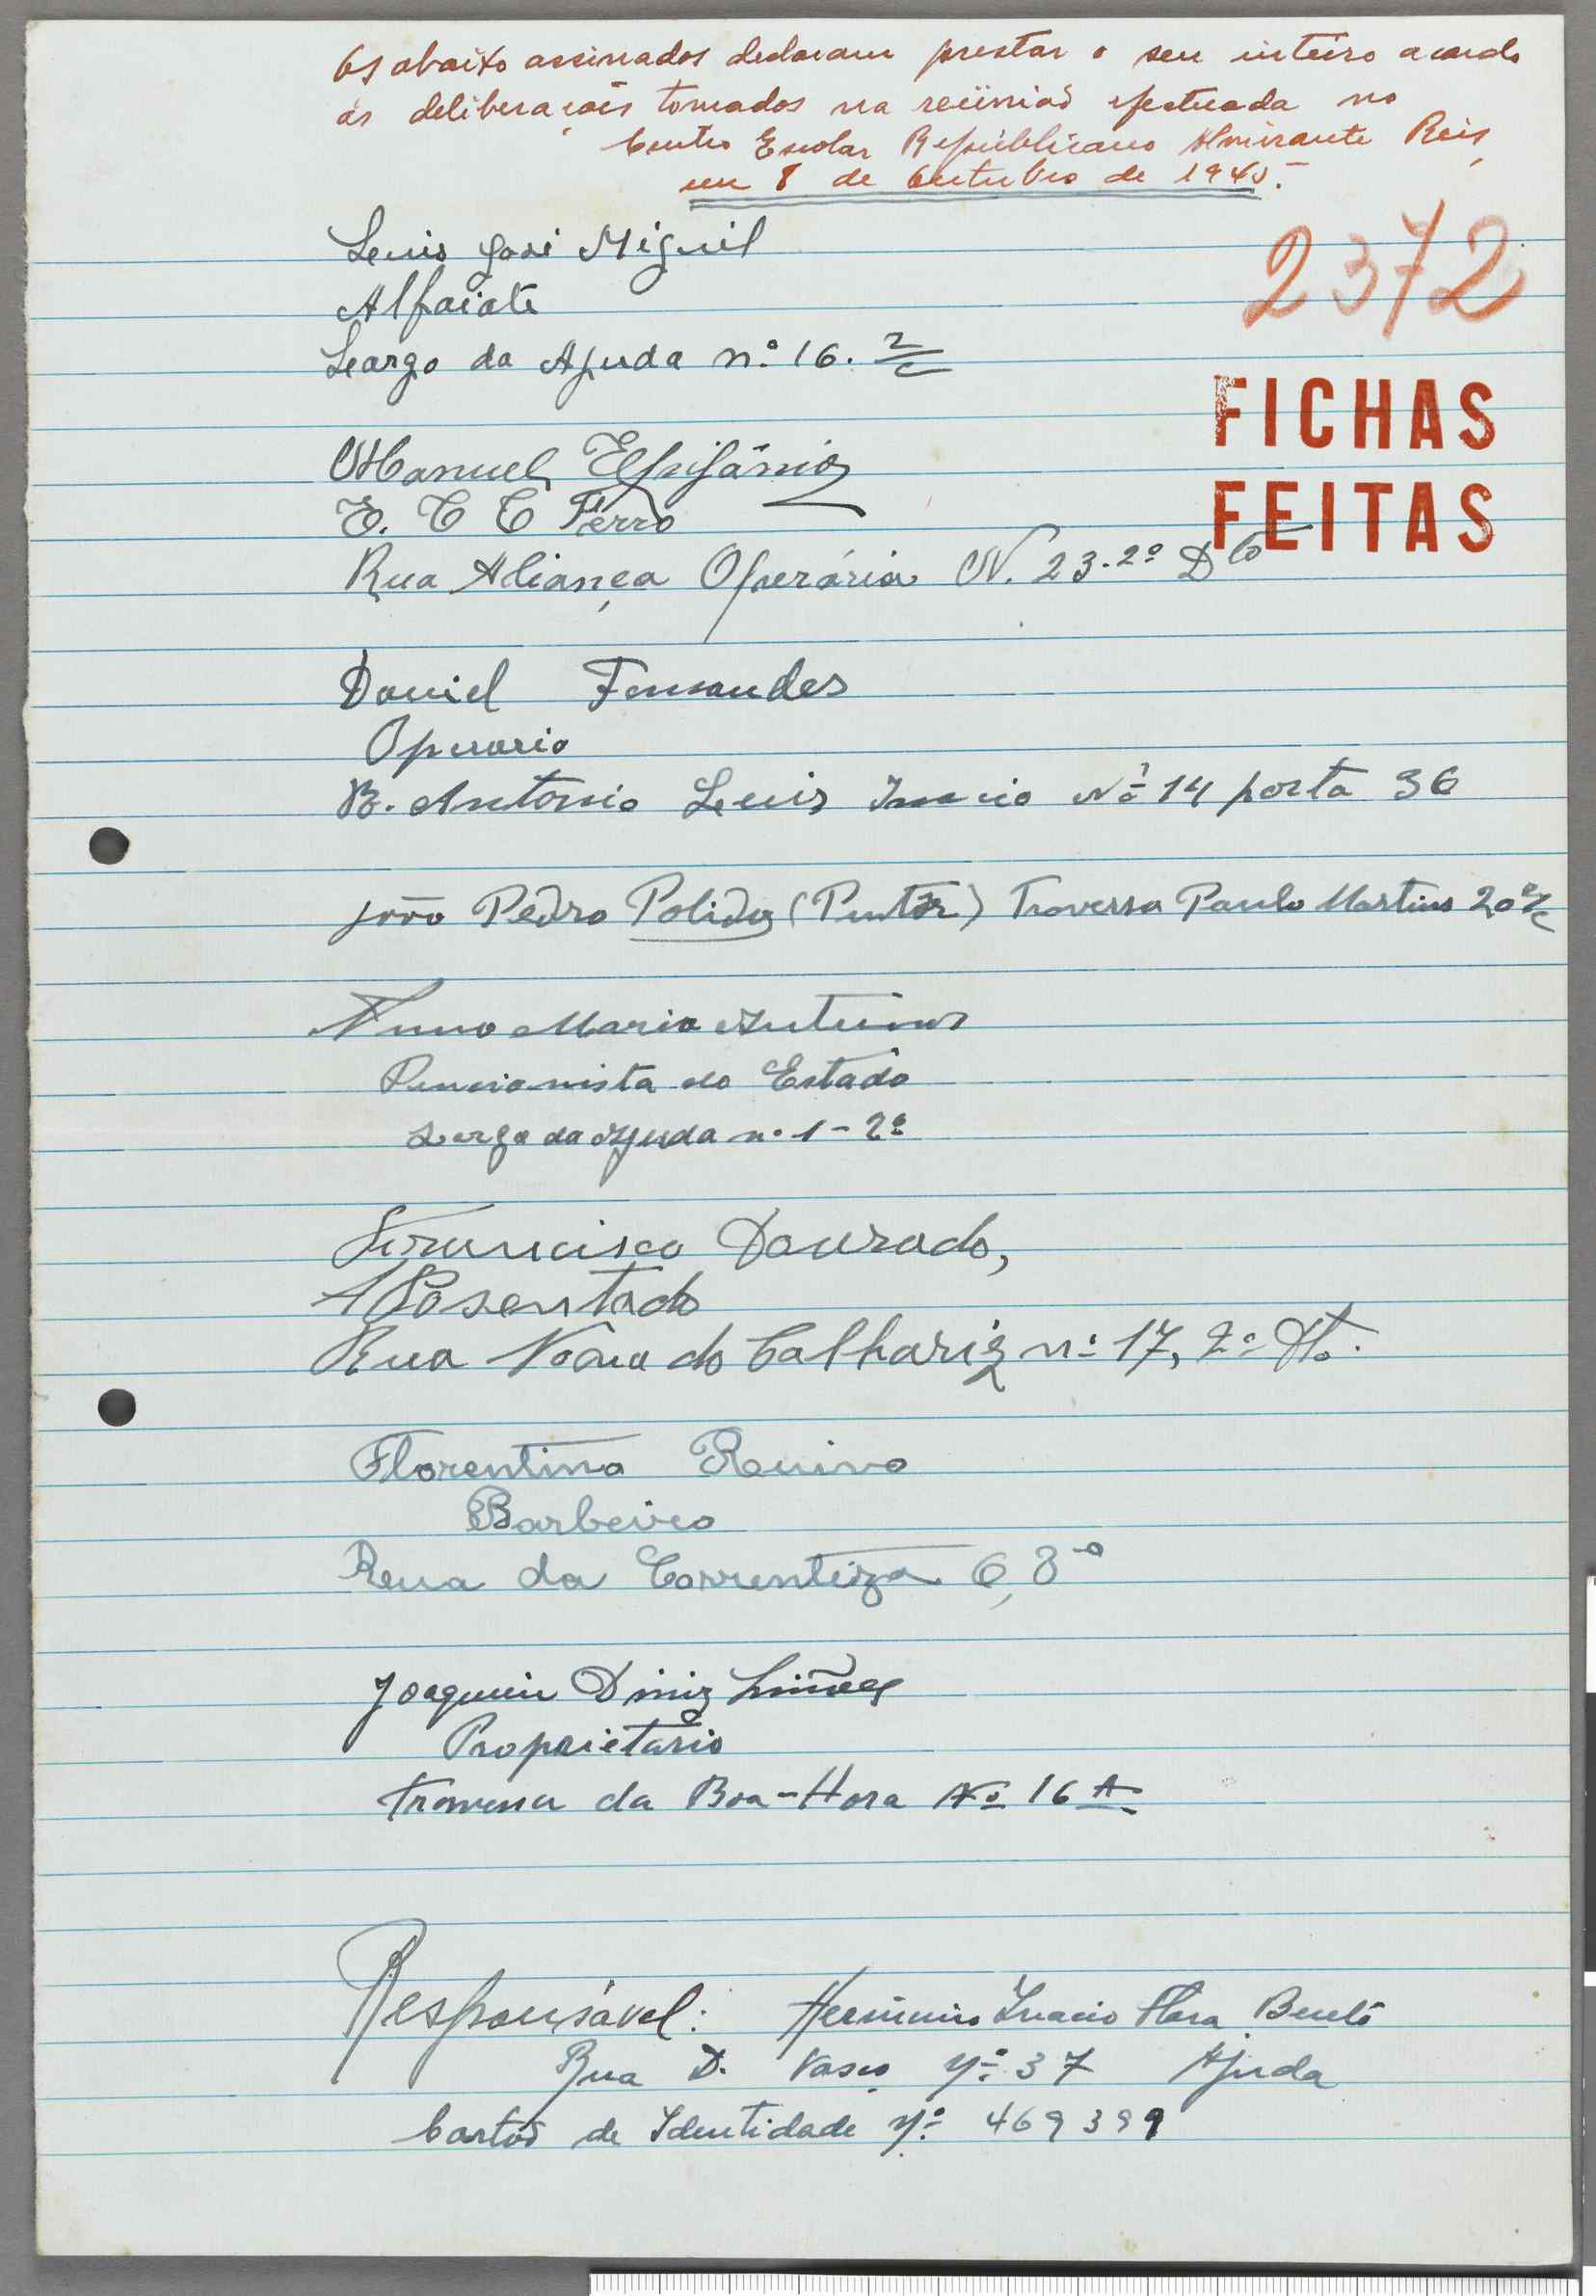 Os abaixo assinados declaram prestar o seu inteiro acordo
ás deliberações tomadas na reünião efectuada no
Centro Escolar Republicano Almirante Reis,
em 8 de Outubro de 1945.
2372
Luis José Miguel
Alfaiate
Largo da Ajuda n.º 16. r/c
FICHAS
FEITAS
Manuel Epifânio
E. C C Ferro
Rua Aliança Operária N. 23-2º Dto
Daniel Fernandes
Operario
B. Antonio Luis Inacio Nº 14 porta 36
João Pedro Polido (Pintor) Travessa Paulo Martins 20 r/c
Nuno Maria Antunes
Pensionista do Estado
Largo da Ajuda n.º 1-2º
Francisco Dourado,
Aposentado
Rua Nova do Calhariz nº 17, 2º
Florentino
Barbeiro
Rua da Correnteza 6, 3º
Joaquim Diniz
Proprietário
Travessa da Boa-Hora Nº 16 A
Responsável: Herminio Inacio Flora Bentó
Rua D. Vasco Nº 37 Ajuda
Cartão de Identidade Nº 469399